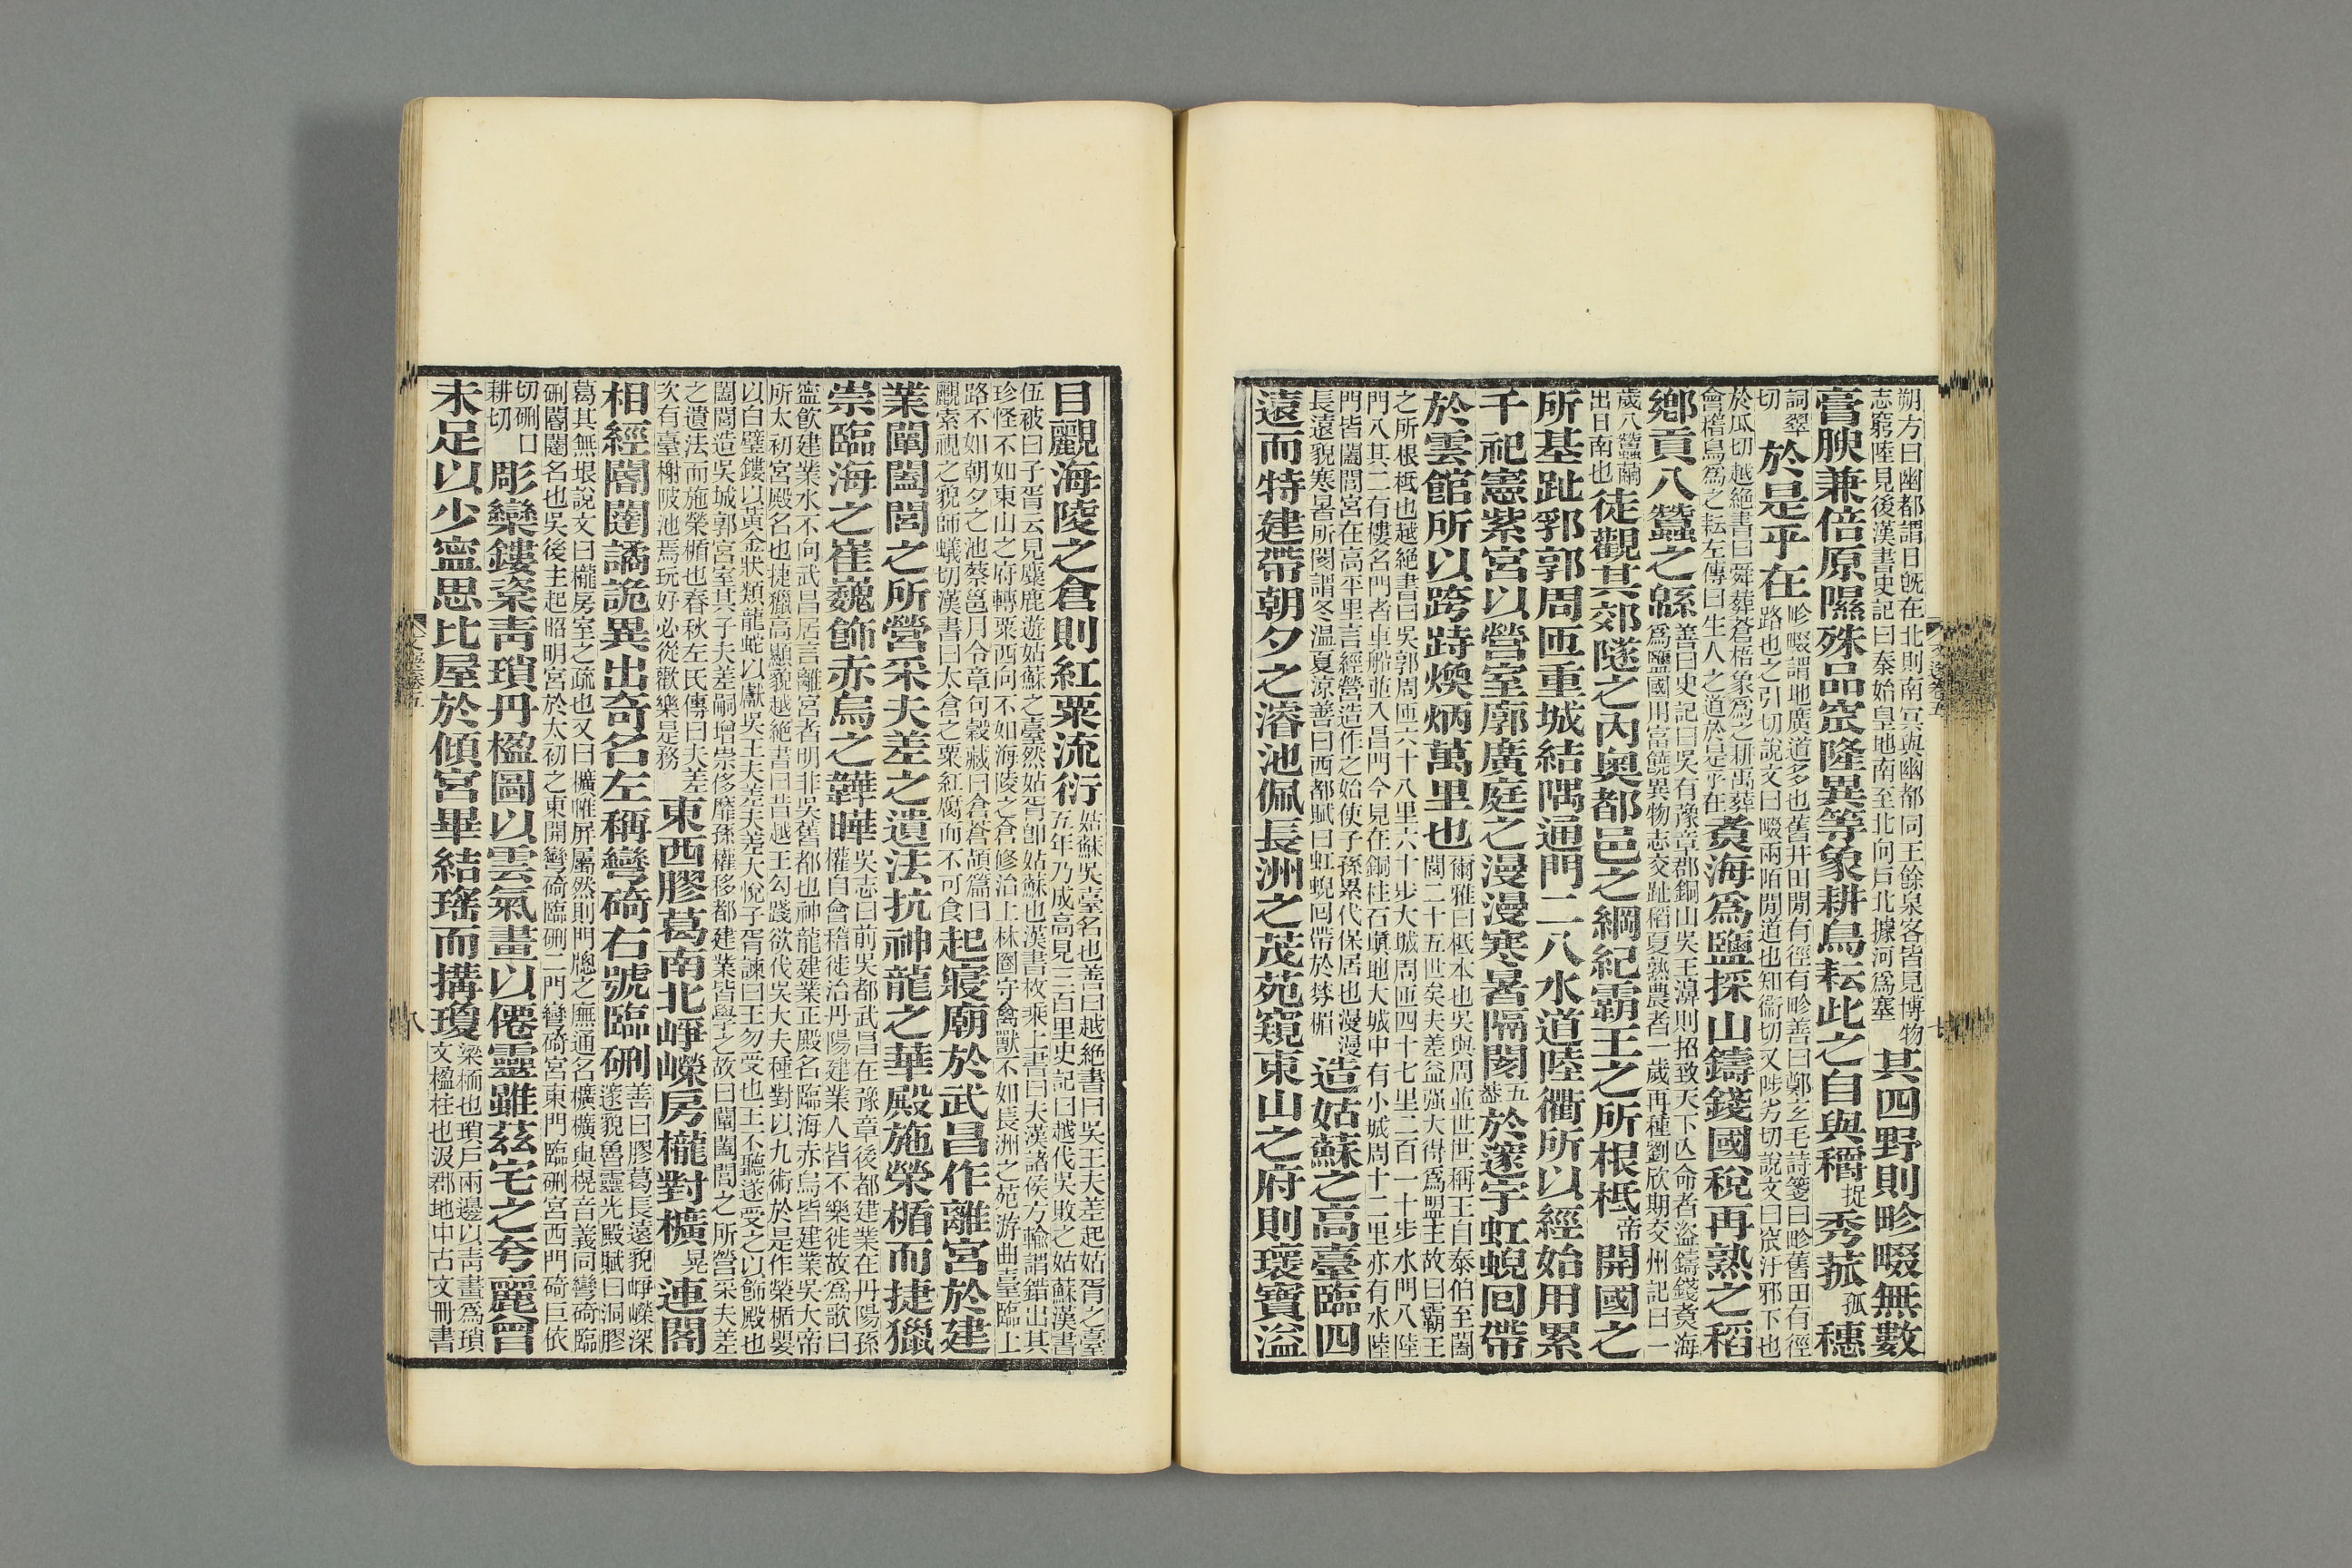 朔方曰幽都謂日旣在北則南冥與幽都同王餘泉客皆見博物
志窮陸見後漢書史記曰秦始皇地南至北向戶北據河爲塞
其四野則畛畷無數
膏腴兼倍原隰殊品窊隆異等象耕鳥耘此之自與穱捉秀菰孤穗
詞翠
切
於是乎在
畛畷謂地廣道多也舊井田閒有徑有畛善曰鄭玄毛詩箋曰畛舊田有徑
路也之引切說文曰畷兩陌閒道也知衞切又陟劣切說文曰窊汙邪下也
於瓜切越絕書曰舜葬蒼梧象爲之耕禹葬
會稽鳥爲之耘左傳曰生人之道於是乎在
煑海爲鹽採山鑄錢國稅再熟之稻
鄉貢八蠶之緜
善曰史記曰吳有豫章郡銅山吳王濞則招致天下亡命者盜鑄錢煑海
爲鹽國用富饒異物志交趾稻夏熟農者一歲再種劉欣期交州記曰一
歲八蠶繭
出日南也
徒觀其郊隧之內奧都邑之綱紀霸王之所根柢帝開國之
所基趾郛郭周匝重城結隅通門二八水道陸衢所以經始用累
千祀憲紫宮以營室廓廣庭之漫漫寒暑隔閡五葢於邃宇虹蜺回帶
於雲館所以跨跱煥炳萬里也
爾雅曰柢本也吳與周並世世稱王自泰伯至闔
閭二十五世矣夫差益强大得爲盟主故曰霸王
之所根柢也越絕書曰吳郭周匝六十八里六十步大城周匝四十七里二百一十步水門八陸
門八其二有樓名門者車船並入昌門今見在銅柱石塡地大城中有小城周十二里亦有水陸
門皆闔閭宮在高平里言經營造作之始使子孫累代保居也漫漫
長遠貌寒暑所閡謂冬温夏涼善曰西都賦曰虹蜺回帶於棼楣
造姑蘇之高臺臨四
遠而特建帶朝夕之濬池佩長洲之茂苑窺東山之府則瓌寶溢
目䚕海陵之倉則紅粟流衍
姑蘇吳臺名也善曰越絕書曰吳王夫差起姑胥之臺
五年乃成高見三百里史記曰越伐吳敗之姑蘇漢書
伍被曰子胥云見麋鹿遊姑蘇之臺然姑胥卽姑蘇也漢書枚乘上書曰夫漢諸侯方輸謂錯出其
珍怪不如東山之府轉粟西向不如海陵之倉修治上林圈守禽獸不如長洲之苑游曲臺臨上
路不如朝夕之池蔡邕月令章句穀藏曰倉蒼頡篇曰
䚕索視之貌師蟻切漢書曰太倉之粟紅腐而不可食
起寢廟於武昌作離宮於建
業闡闔閭之所營采夫差之遺法抗神龍之華殿施榮楯而捷獵
崇臨海之崔巍飾赤烏之韡曄
吳志曰前吳都武昌在豫章後都建業在丹陽孫
權自會稽徙治丹陽建業人皆不樂徙故爲歌曰
寧飮建業水不向武昌居言離宮者明非吳舊都也神龍建業正殿名臨海赤烏皆建業吳大帝
所太初宮殿名也捷獵高顯貌越絕書曰昔越王勾踐欲伐吳大夫種對以九術於是作榮楯嬰
以白璧鏤以黃金狀類龍蛇以獻吳王夫差夫差大悅子胥諫曰王勿受也王不聽遂受之以飾殿也
闔閭造吳城郭宮室其子夫差嗣增崇侈靡孫權移都建業皆學之故曰闡闔閭之所營采夫差
之遺法而施榮楯也春秋左氏傳曰夫差
次有臺榭陂池焉玩好必從歡樂是務
東西膠葛南北崢嶸房櫳對櫎晃連閣
相經閽闥譎詭異出奇名左稱彎碕右號臨硎
善曰膠葛長遠貌崢嶸深
邃貌魯靈光殿賦曰洞膠
葛其無垠說文曰櫳房室之疏也又曰櫎帷屏屬然則門牕之廡通名櫎櫎與榥音義同彎碕臨
硎閽闥名也吳後主起昭明宮於太初之東開彎碕臨硎二門彎碕宮東門臨硎宮西門碕巨依
切硎口
耕切
彫欒鏤楶靑瑣丹楹圖以雲氣畫以僊靈雖茲宅之夸麗曾
未足以少寧思比屋於傾宮畢結瑤而構瓊
梁㮰也瑣戶兩邊以靑畫爲瑣
文楹柱也汲郡地中古文冊書
八